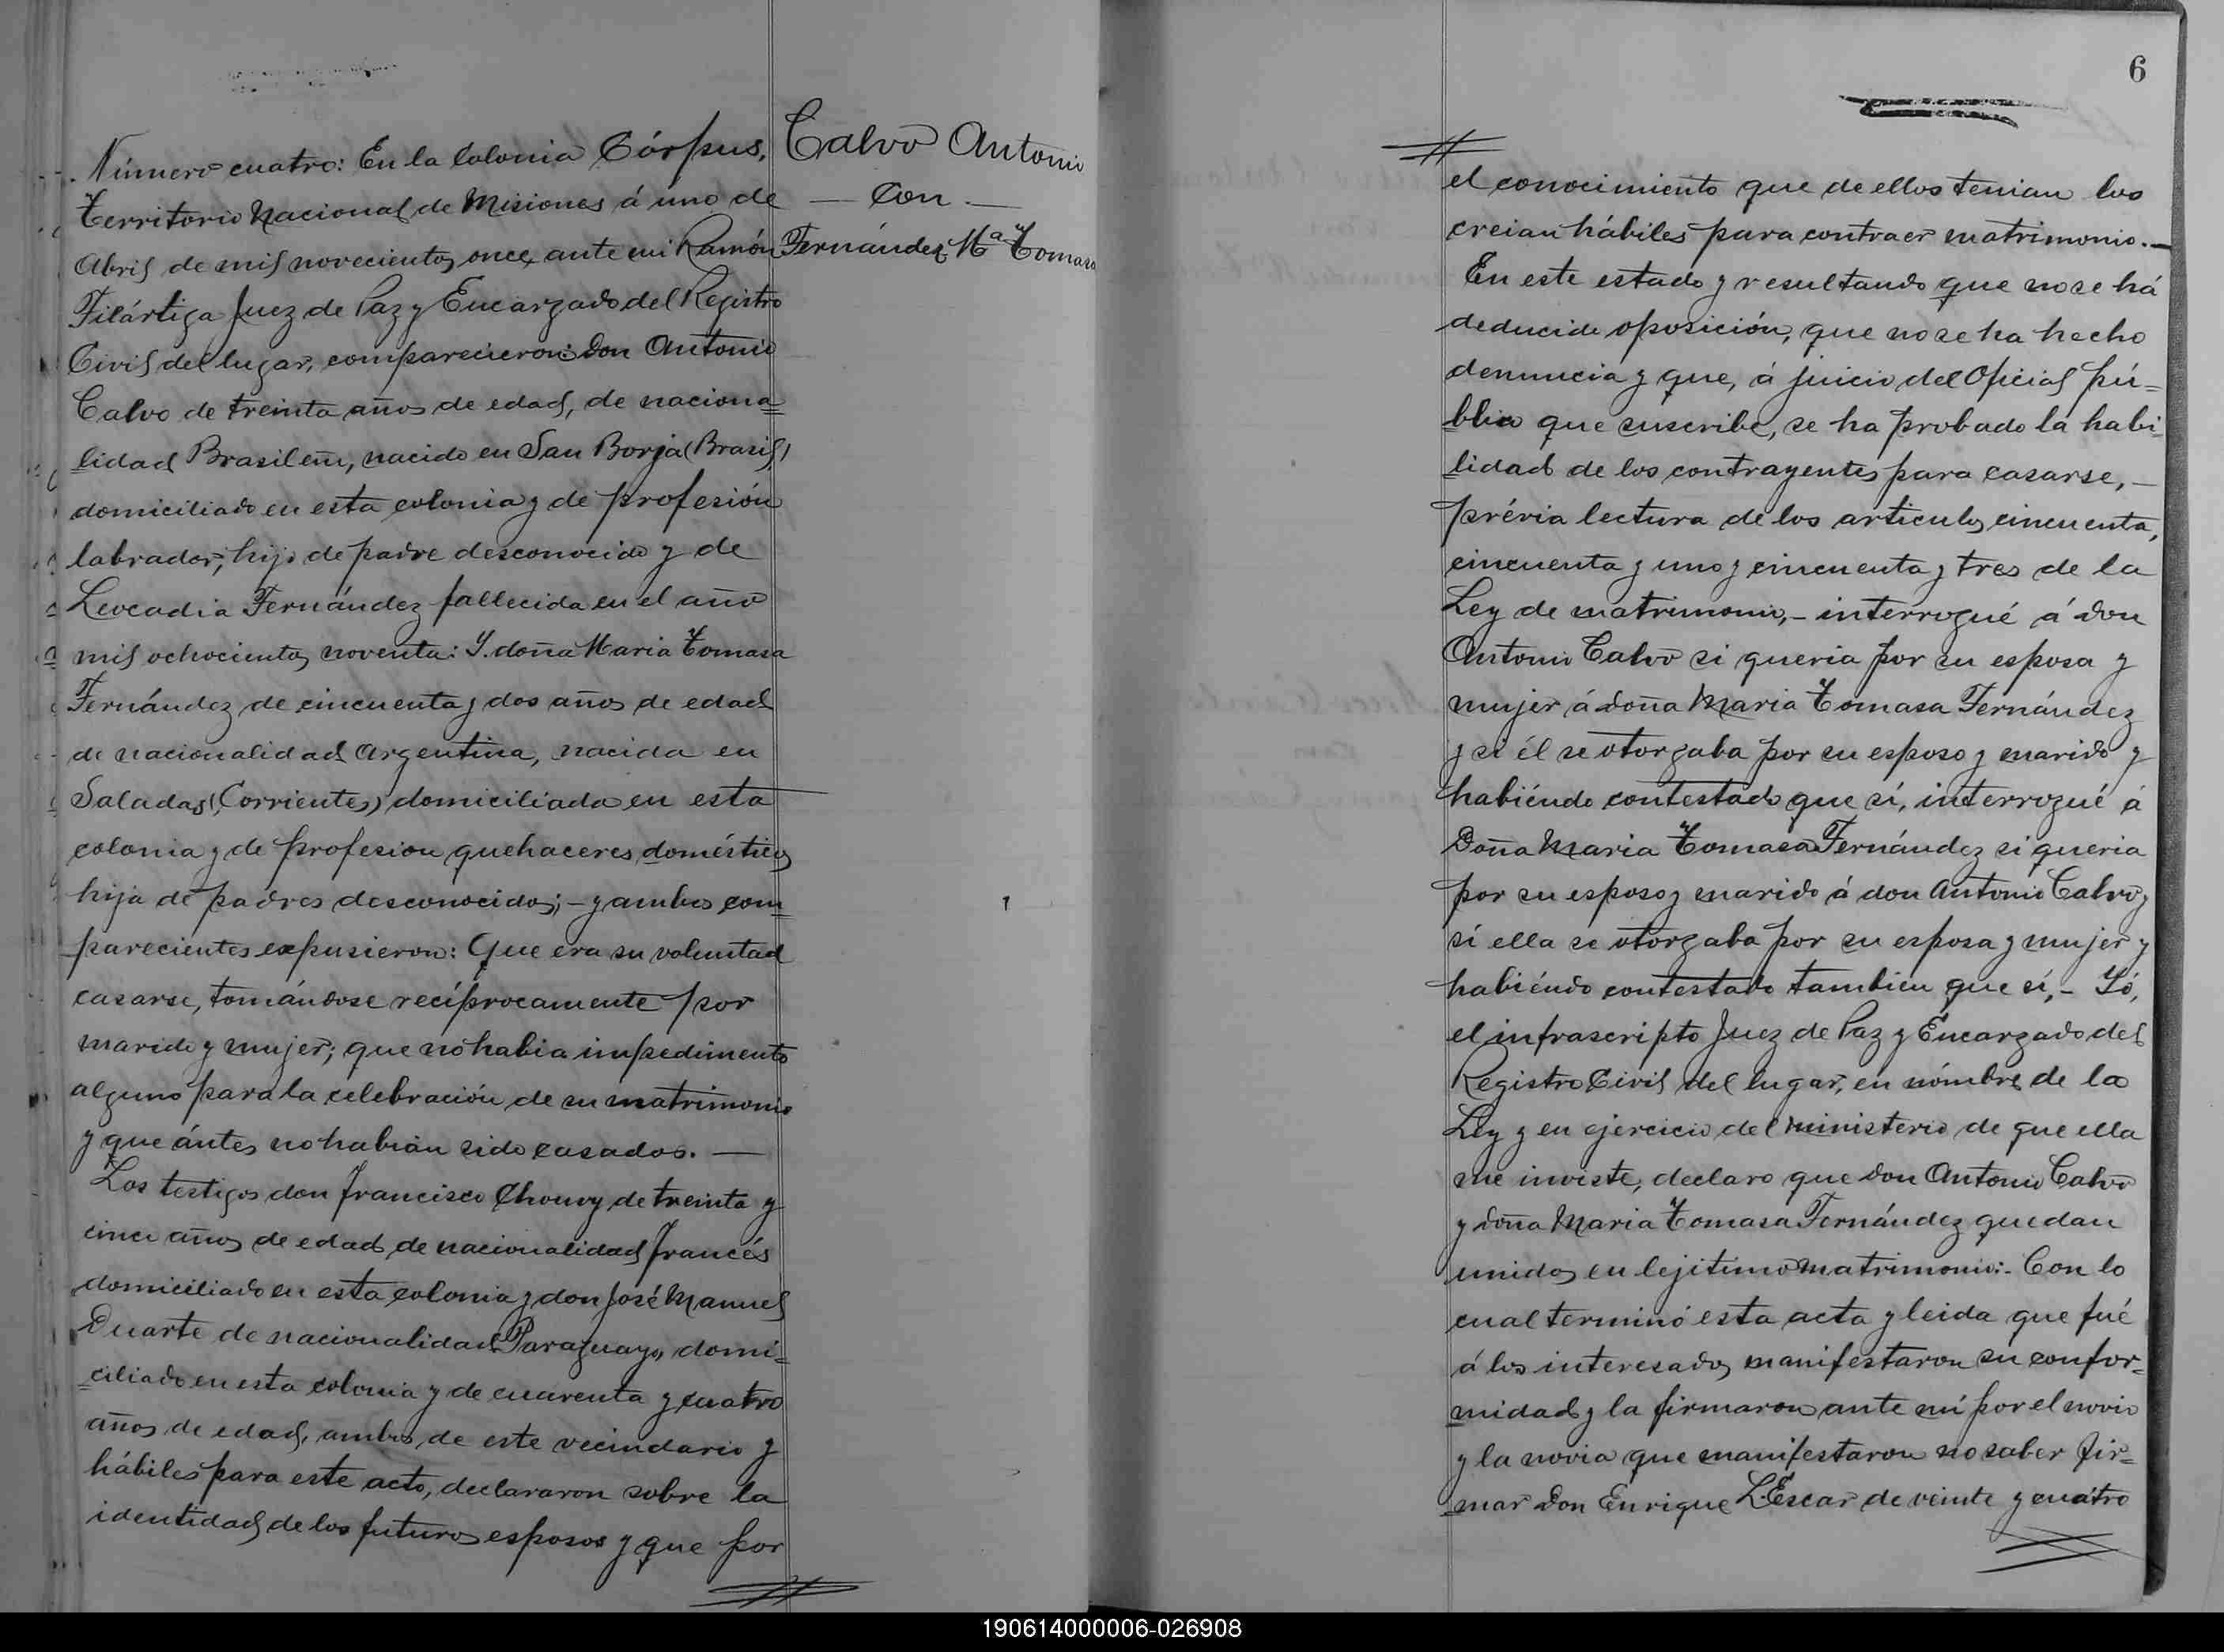 Número cuatro: En la Colonia Córpus,
Territorio Nacional de Misiones á uno de
Abril de mil novecientos once, ante mi Ramón
Filártiga Juez de Paz y Encargado del Registro
Civil del lugar, comparecieron: Don Antonio
Calvo de treinta años de edad, de naciona=
lidad Brasileño, nacido en San Borja (Brasil)
domiciliado en esta colonia y de profesión
labrador, hijo de padre desconocido y de
Leocadia Fernández fallecida en el año
mil ochocientos noventa: Y. doña Maria Tomasa
Fernández de cincuenta y dos años de edad
de nacionalidad Argentina, nacida en
Saladas (Corrientes) domiciliada en esta
colonia y de profesion quehaceres domésticos
hija de padres desconocidos; - y ambos com=
parecientes expusieron: Que era su voluntad
casarse, tomándose recíprocamente por
marido y mujer; que no habia impedimento
alguno para la celebración de su matrimonio
y que ántes no habian sido casados. —
Los testigos don Francisco Chouvy de treinta y
cinco años de edad de nacionalidad francés
domiciliado en esta colonia y don José Manuel
Duarte de nacionalidad Paraguayo, domi=
ciliado en esta colonia y de cuarenta y cuatro
años de edad, ambos de este vecindario y
hábiles para este acto, declararon sobre la
identidad de los futuros esposos y que por
Calvo Antonio
— Con —
Fernández Mª Tomasa
6
el conocimiento que de ellos tenian los
creian hábiles para contraer matrimonio. —
En este estado y resultando que no se há
deducido oposición, que no se ha hecho
denuncia y que, á juicio del Oficial pú=
blico que suscribe, se ha probado la habi=
lidad de los contrayentes para casarse, —
prévia lectura de los articulos cincuenta,
cincuenta y uno y cincuenta y tres de la
Ley de matrimonio, - interrogué á don
Antonio Calvo si queria por su esposa y
mujer á doña Maria Tomasa Fernández
y si él se otorgaba por su esposo y marido y
habiéndo contestado que sí, interrogué á
Doña Maria Tomasa Fernández si queria
por su esposo y marido á don Antonio Calvo y
si ella se otorgaba por su esposa y mujer y
habiéndo contestado tambien que sí, - Yó,
el infrascripto Juez de Paz y Encargado del
Registro Civil del lugar, en nómbre de la
Ley y en ejercicio del ministerio de que ella
me inviste, declaro que don Antonio Calvo
y doña Maria Tomasa Fernández quedan
unidos en lejitimo matrimonio: - Con lo
cual terminó esta acta y leida que fué
á los interesados manifestaron su confor=
midad y la firmaron ante mí por el novio
y la novia que manifestaron no saber fir=
mar Don Enrique L. Escar de veinte y cuatro
190614000006-026908